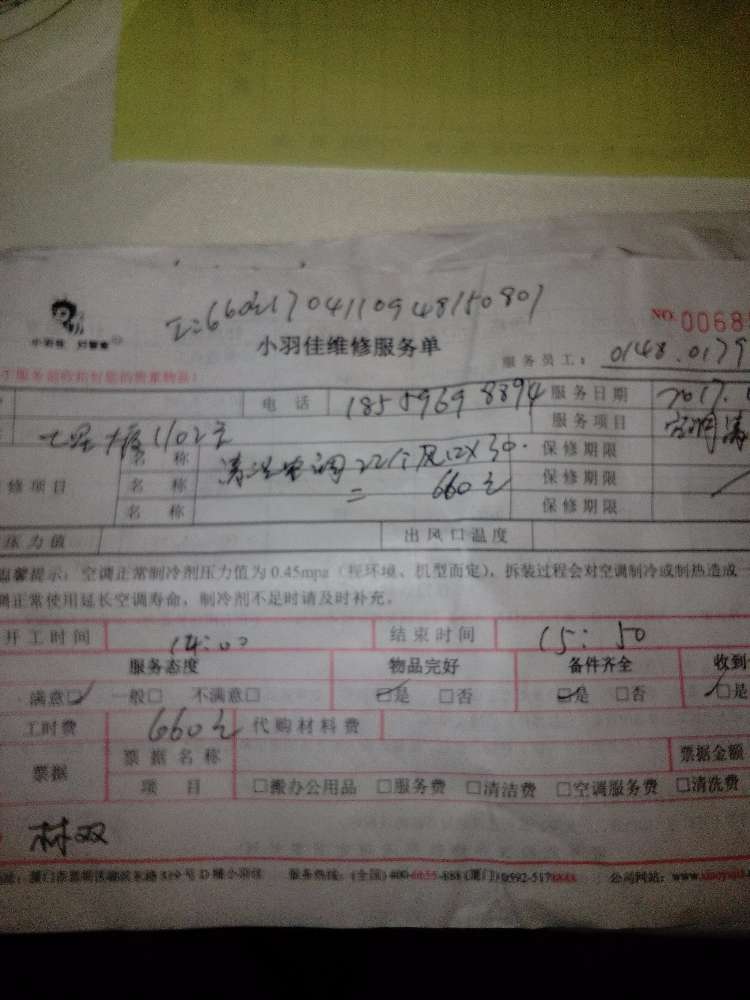 工:660元1704110948150807
小羽佳 好管家
小羽佳维修服务单
NO. 0068
服务员工: 0148.0179
电话 18559698894 服务日期 2017.1
七星大厦1102室 服务项目 空调清
名称 清洗空调22个风口×30. 保修期限
修项目 名称 =660元 保修期限
名称 保修期限
压力值 出风口温度
温馨提示:空调正常制冷剂压力值为0.45mpa(视环境、机型而定),拆装过程会对空调制冷或制热造成一
调正常使用延长空调寿命,制冷剂不足时请及时补充。
开工时间 14:00 结束时间 15:50
服务态度 物品完好 备件齐全 收到
满意□ 一般□ 不满意□ □是 □否 □是 □否 □是
工时费 660元 代购材料费
票据 票据名称 票据金额
项目 □搬办公用品 □服务费 □清洁费 □空调服务费 □清洗费
林双
服务热线:(全国)400-6655-888(厦门)0592-5178888 公司网站:www.xiaoyuji